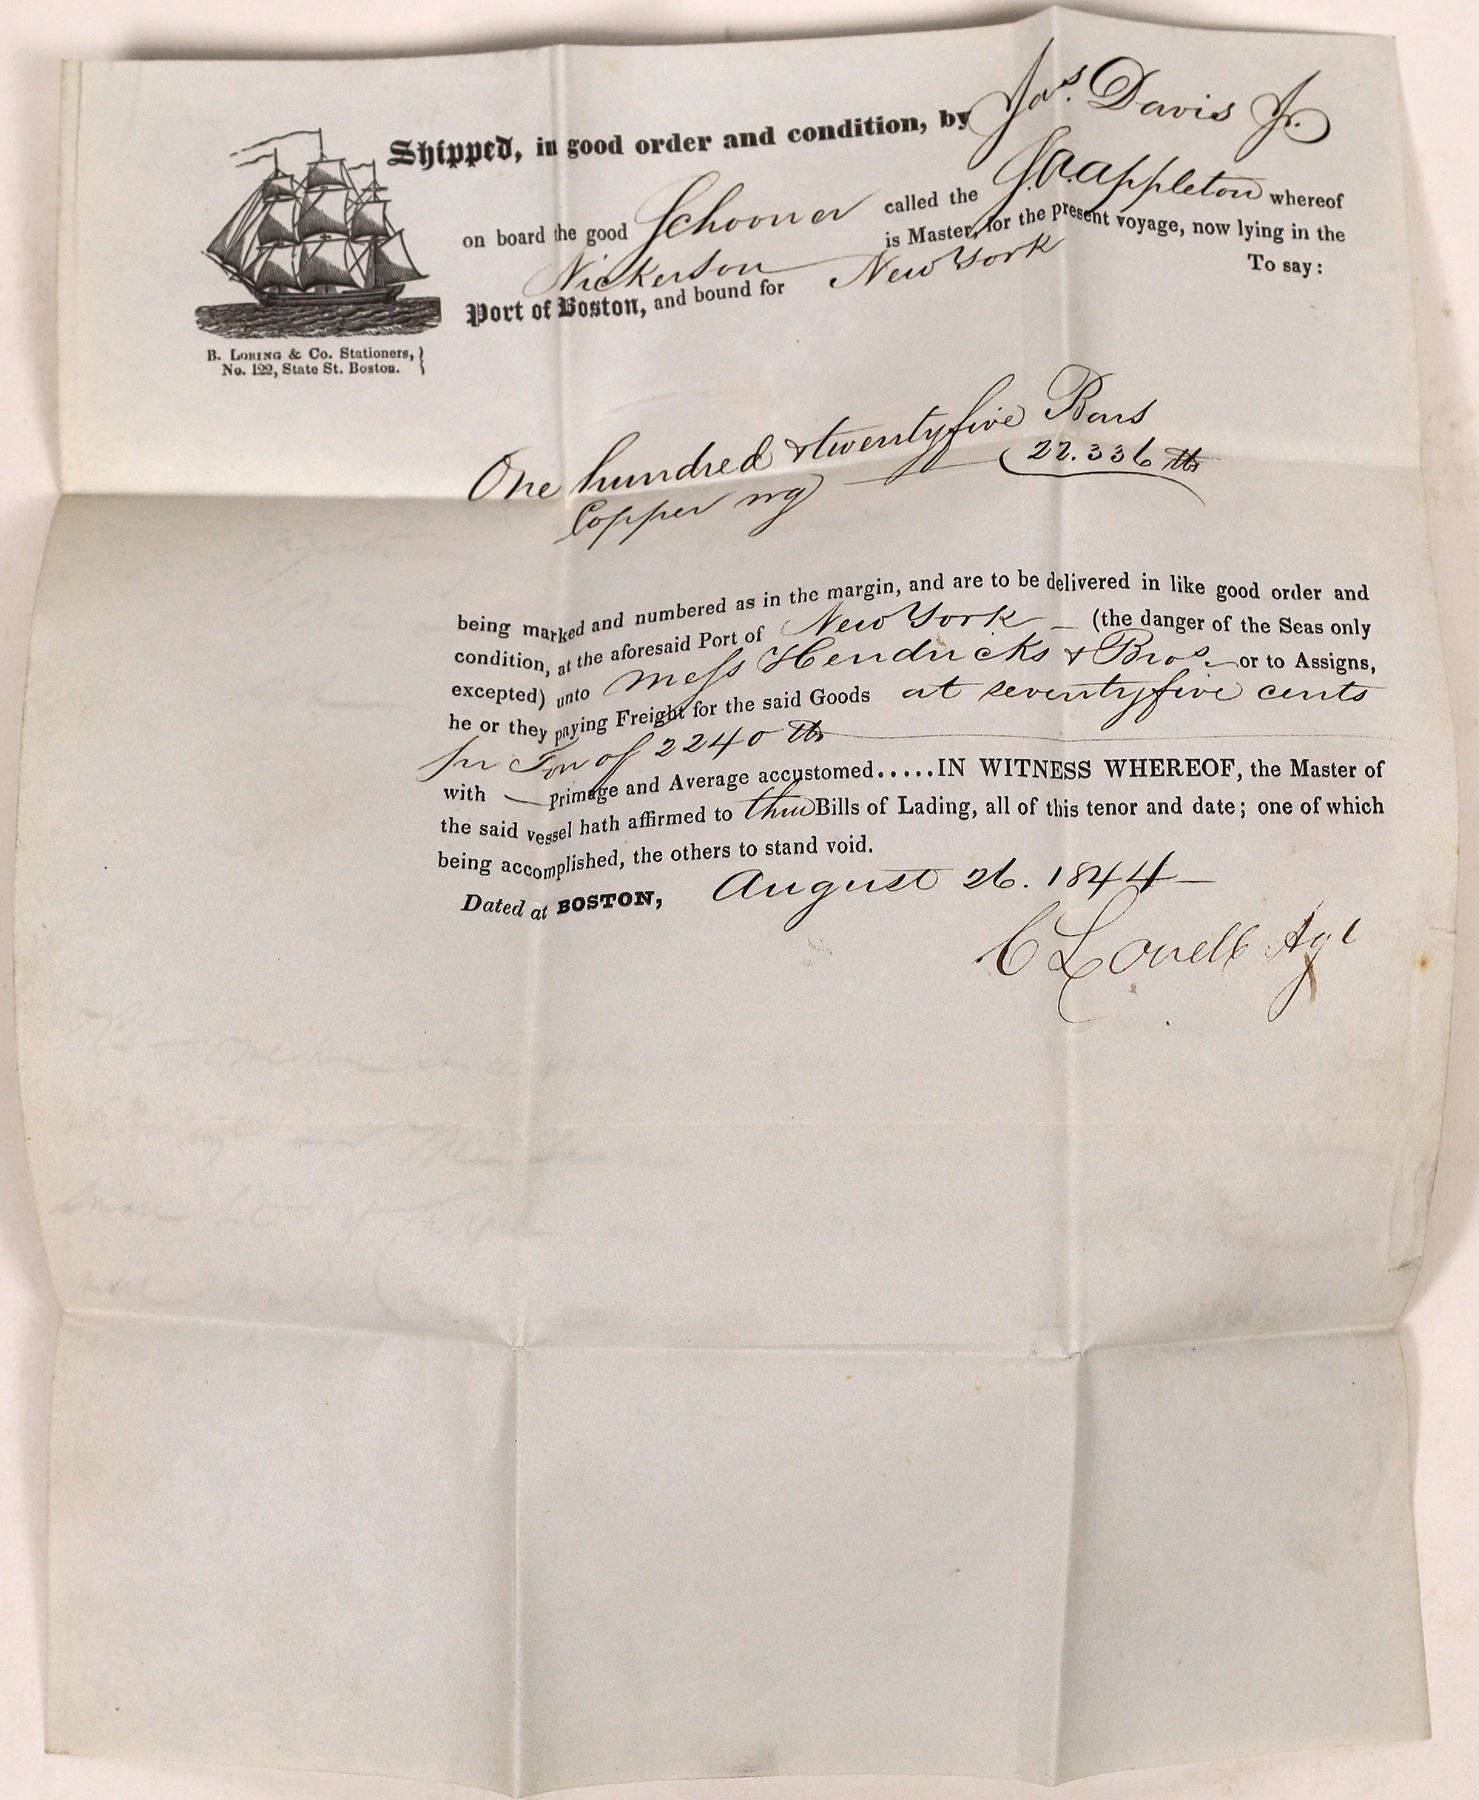 Shipped, in good order and condition, by Jas. Davis Jr.
on board the good Schooner called the J.A. Appleton whereof
Nickerson is Master, for the present voyage, now lying in the
Port of Boston, and bound for New York To say:
B. LORING & Co. Stationers,
No. 122, State St. Boston.
One hundred & twentyfive Bars
Copper wg 22.336 lbs
being marked and numbered as in the margin, and are to be delivered in like good order and
condition, at the aforesaid Port of New York (the danger of the Seas only
excepted) unto Mess Hendricks & Bros. or to Assigns,
he or they paying Freight for the said Goods at seventyfive cents
pr Ton of 2240 lbs
with — Primage and Average accustomed.....IN WITNESS WHEREOF, the Master of
the said vessel hath affirmed to three Bills of Lading, all of this tenor and date; one of which
being accomplished, the others to stand void.
Dated at BOSTON, August 26. 1844
C Lovell Agt